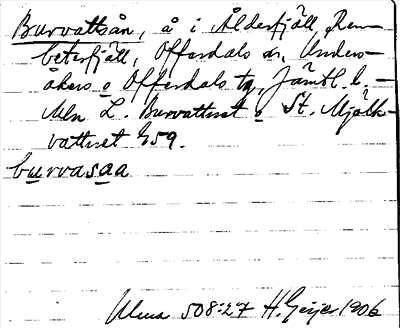 Burvattsån, å i Ålderfjäll, Ren-
beterfjäll, Offerdals sn, Unders-
åkers o Offerdals tg, Jämtl. l.
Mln L. Burvattnet o St. Mjölk-
vattnet G59.
burvasaa
Ulma 508:27 H. Geijer 1906